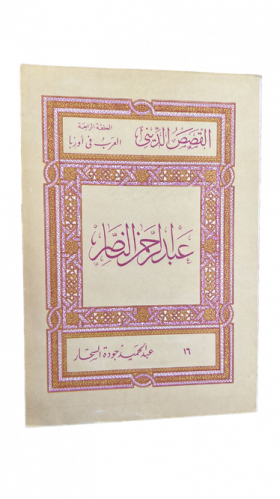 القصص الديني
الحلقة الرابعة
العرب في أوربا
عبد الرحمن الناصر
١٦
عبد الحميد جودة السحار